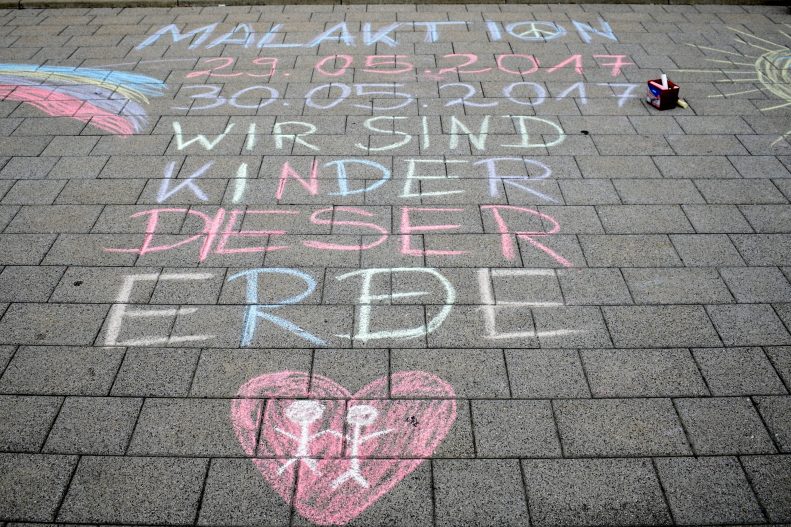 MALAKTION
29.05.2017
30.05.2017
WIR SIND
KINDER
DIESER
ERDE